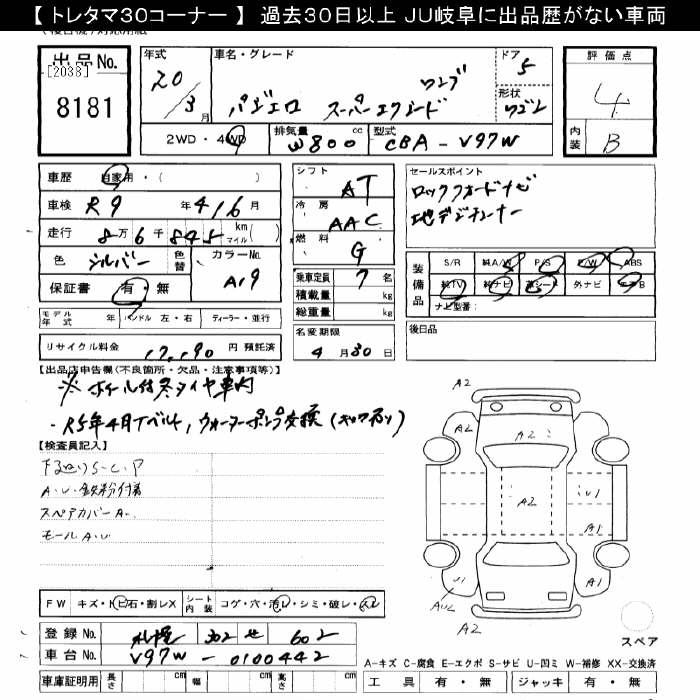 【 トレタマ30コーナー 】 過去30日以上 JU岐阜に出品歴がない車両
出品No.
[2038]
8181
年式
20/3月
車名・グレード
ワンプ
パジェロ スーパーエクシード
ドア
5
形状
ワゴン
2WD・4WD
排気量
3800 cc
型式
CBA-V97W
評価点
4
内装
B
車歴 自家用・( )
車検 R9年4/6月
走行 8万6千845 km マイル( )
色 シルバー 色替 カラーNo. A19
保証書 有・無
モデル年式 年 ハンドル 左・右 ディーラー・並行
リサイクル料金 17,190円 預託済
シフト AT
冷房 AAC
燃料 G
乗車定員 7名
積載量 kg
総重量 kg
名変期限
4月30日
セールスポイント
ロックフォードナビ
地デジチューナー
装備品
S/R 純A/W P/S P/W ABS
純TV 純ナビ 革シート 外ナビ エアB
ナビ型番:
後日品
【出品店申告欄(不良箇所・欠品・注意事項等)】
※ ホイル付冬タイヤ車内
・R5年4月Tベルト,ウォーターポンプ交換(キック有り)
【検査員記入】
下廻りS・C・P
A・U・鉄粉付着
スペアカバーA・
モールA・U
A2
A2
A2
A2
U1
A1
U1
A1
A2
スペア
FW キズ・トビ石・割レX
シート内装 コゲ・穴・汚レ・シミ・破レ・スレ
登録No. 札幌 302 せ 602
車台No. V97W-0100442
車庫証明用 長さ cm 幅 cm 高さ cm
A-キズ C-腐食 E-エクボ S-サビ U-凹ミ W-補修 XX-交換済
工具 有・無 ジャッキ 有・無